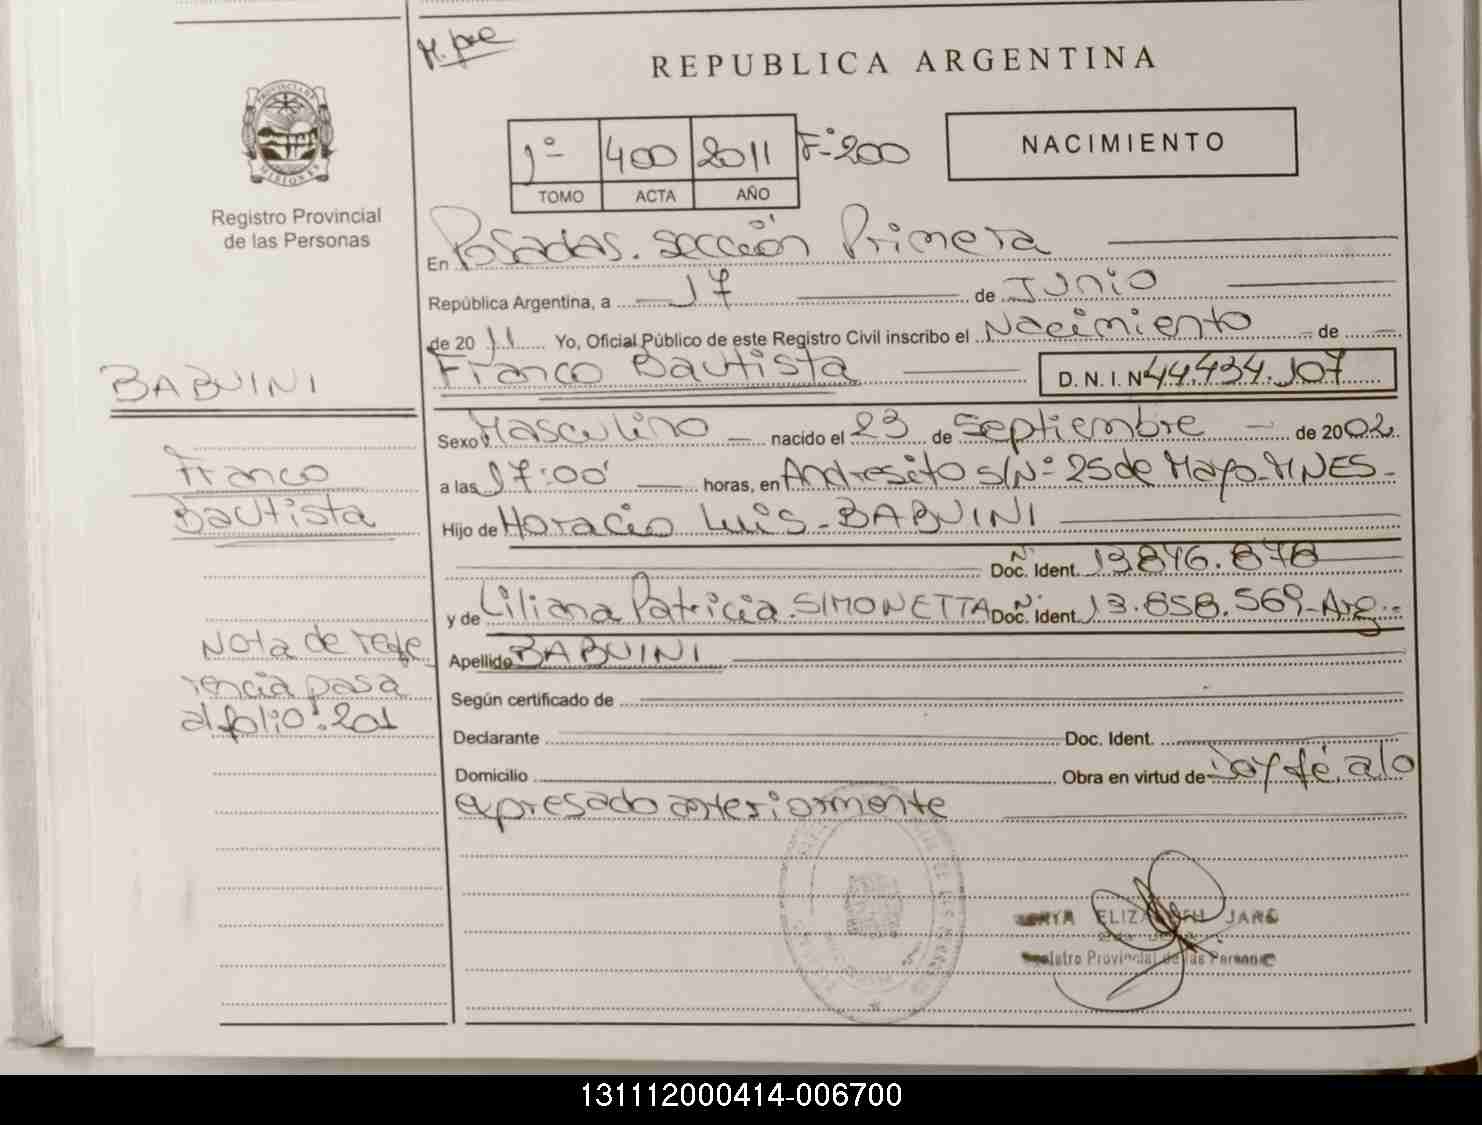 M. pre
REPUBLICA ARGENTINA
PROVINCIA DE
MISIONES
Registro Provincial
de las Personas
1º 400 2011 Fº 200
TOMO ACTA AÑO
NACIMIENTO
En Posadas. sección Primera
República Argentina, a 17 de Junio
de 2011 Yo, Oficial Público de este Registro Civil inscribo el Nacimiento de
Franco Bautista D.N.I.Nº 44.434.107
BABUINI
Franco
Bautista
Sexo Masculino nacido el 23 de Septiembre de 2002
a las 17:00 horas, en Andresito S/Nº 25 de Mayo-MNES-
Hijo de Horacio Luis-BABUINI
Doc. Ident. Nº 13.846.878
y de Liliana Patricia SIMONETTA Doc. Ident. Nº 13.858.569-Arg.-
Apellido BABUINI
Según certificado de
Declarante Doc. Ident.
Domicilio Obra en virtud de Doy fé a lo
expresado anteriormente
Nota de refe
rencia pasa
al folio: 201
ELIZABETH JARC
Registro Provincial de las Personas
131112000414-006700